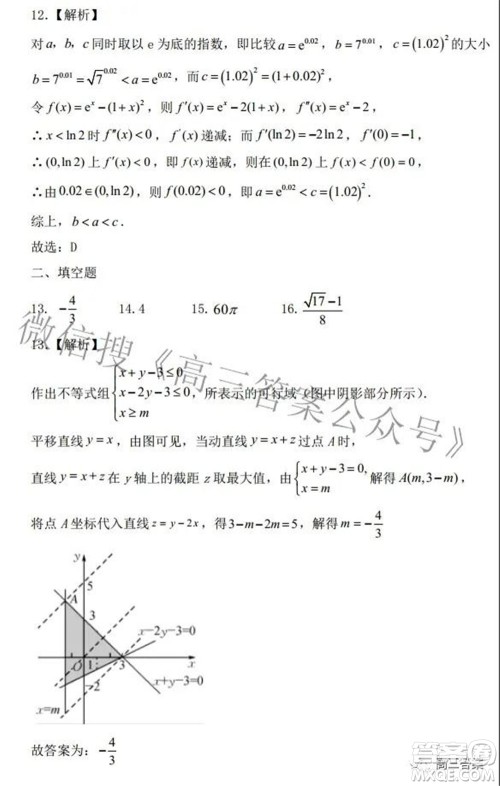 12.【解析】
对 a, b, c 同时取以 e 为底的指数，即比较 a=e^{0.02}，b=7^{0.01}，c=(1.02)^2 的大小
b=7^{0.01}=√7^{0.02}<a=e^{0.02}，而 c=(1.02)^2=(1+0.02)^2，
令 f(x)=e^x-(1+x)^2，则 f′(x)=e^x-2(1+x)，f″(x)=e^x-2，
∴x<ln2 时 f″(x)<0，f′(x) 递减；而 f′(ln2)=-2ln2，f′(0)=-1，
∴(0,ln2) 上 f′(x)<0，即 f(x) 递减，则在 (0,ln2) 上 f(x)<f(0)=0，
∴由 0.02∈(0,ln2)，则 f(0.02)<0，即 a=e^{0.02}<c=(1.02)^2.
综上，b<a<c.
故选：D
二、填空题
13. -4/3 14. 4 15. 60π 16. (√17-1)/8
13.【解析】
作出不等式组{x+y-3≤0, x-2y-3≤0, x≥m}所表示的可行域（图中阴影部分所示）.
平移直线 y=x，由图可见，当动直线 y=x+z 过点 A 时，
直线 y=x+z 在 y 轴上的截距 z 取最大值，由{x+y-3=0, x=m}解得 A(m,3-m)，
将点 A 坐标代入直线 z=y-2x，得 3-m-2m=5，解得 m=-4/3
y
5
A
3
x-2y-3=0
O 1 3 x
-2
x+y-3=0
x=m
故答案为：-4/3
微信搜《高三答案公众号》
高三答案